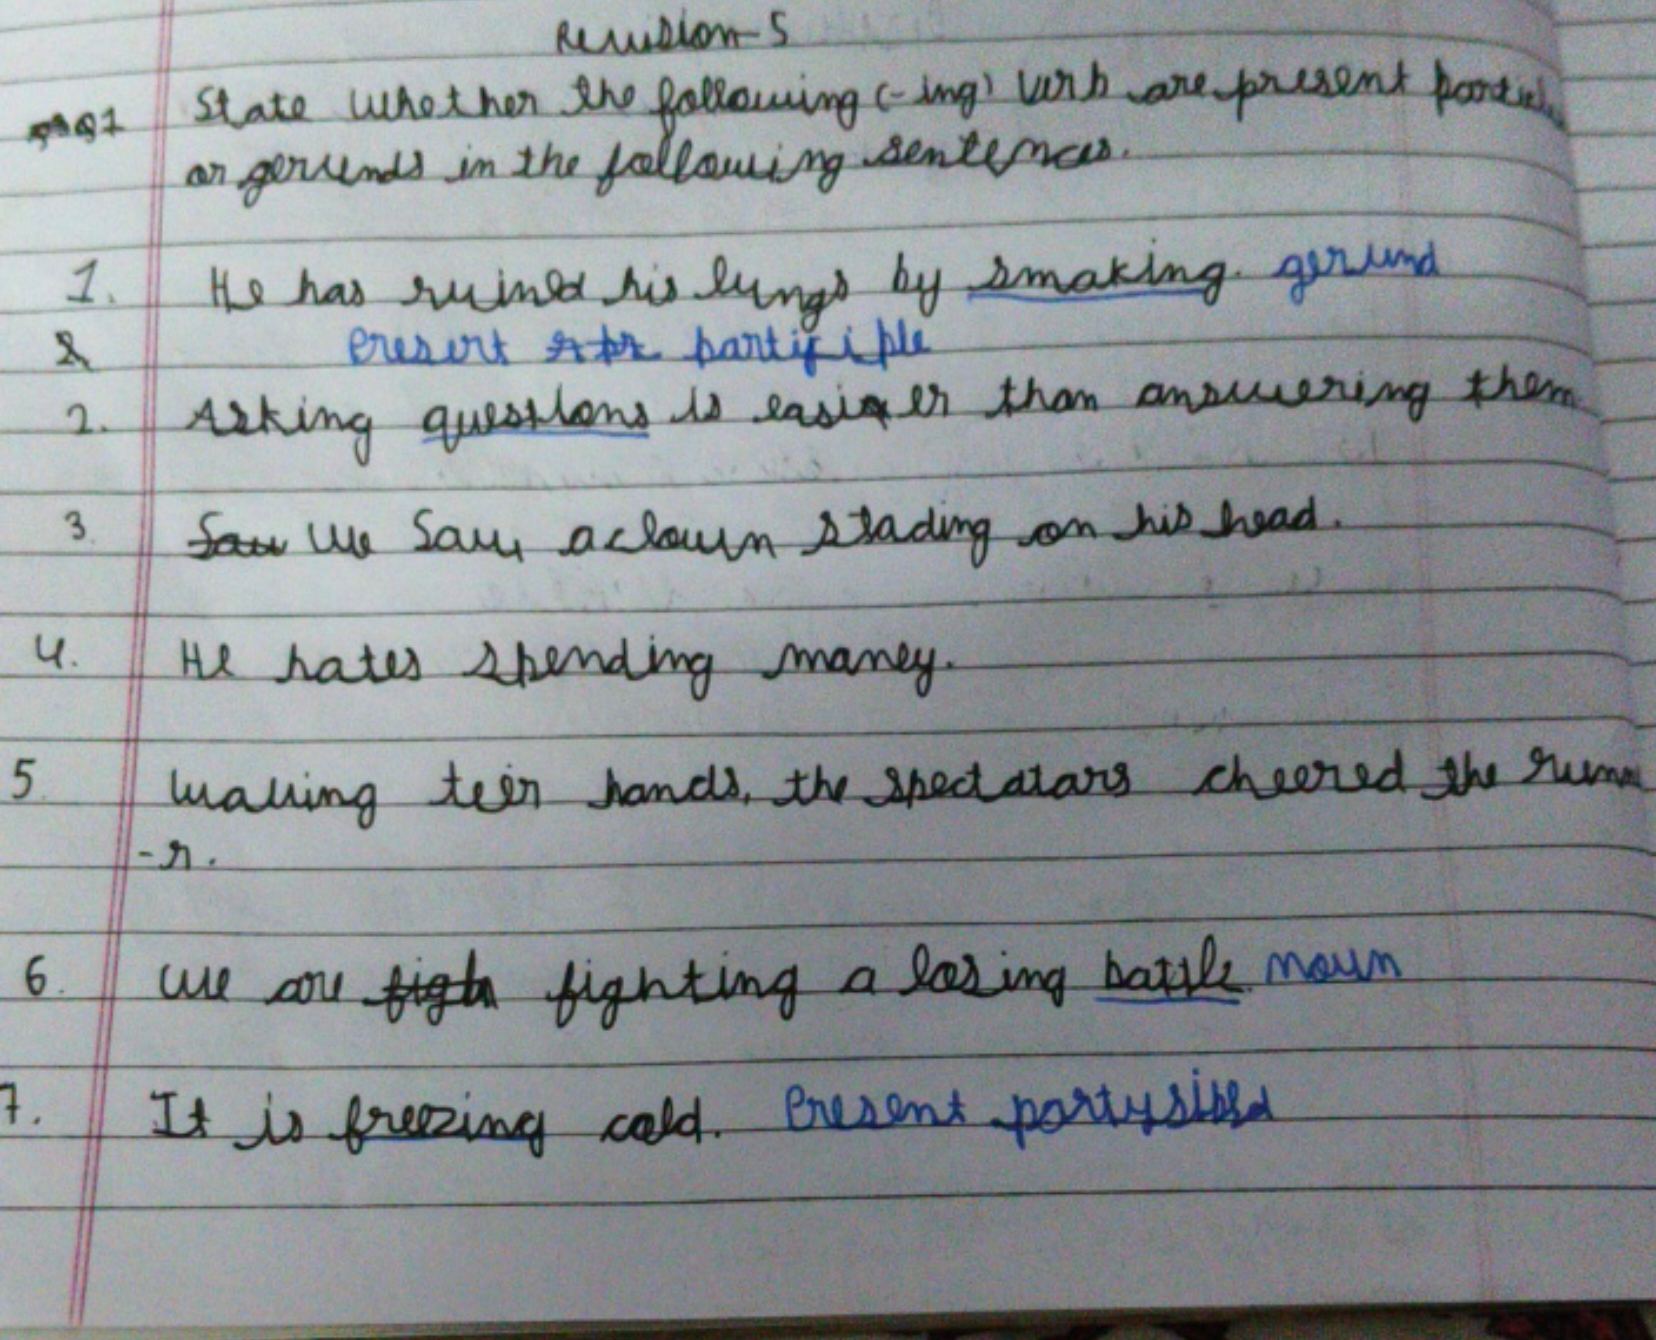 Revision-5
Q1 State whether the following (-ing) verb are present
or gerunds in the following sentences.
1. He has ruined his lungs by smoking. gerund
Present partifiple
2. Asking questions is easier than answering them
3. Saw We Saw a clown stading on his head.
4. He hates spending money.
5. waving teir hands, the spectators cheered the runne
-r.
6. We are figh fighting a losing battle noun
7. It is freezing cold. Present partysipld